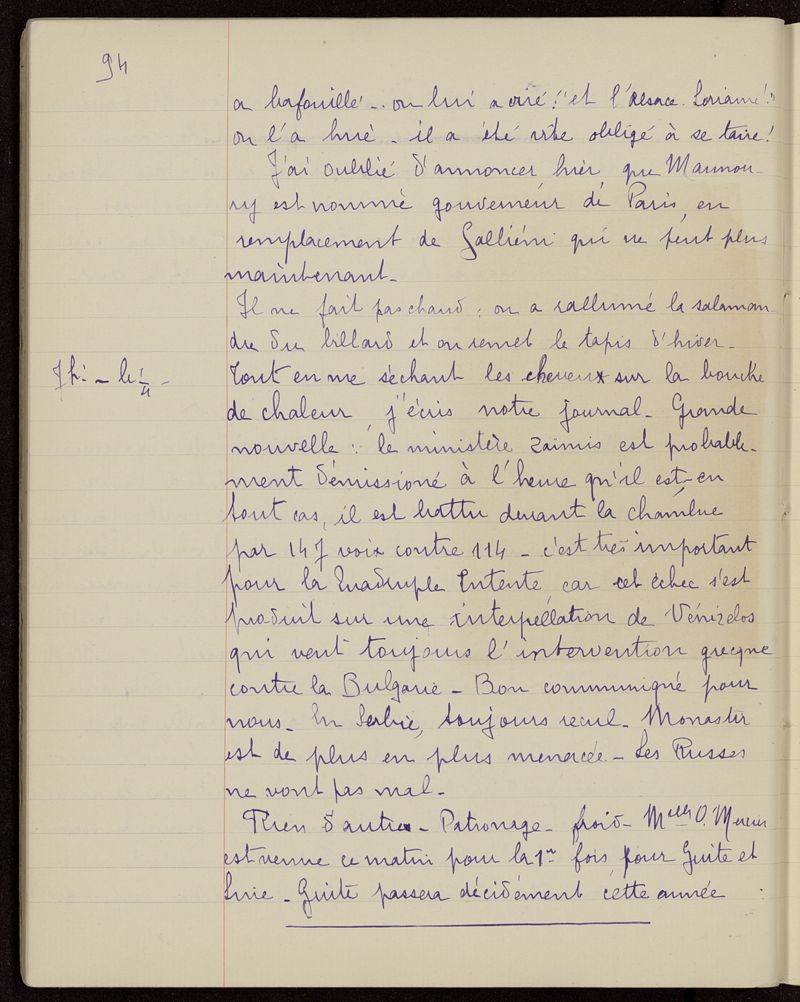 94
a bafouillé .. on lui a crié : "et l'Alsace. Lorraine !"
on l'a hué - il a été vite obligé à se taire !
J'ai oublié d'annoncer hier, que Maunou-
ry est nommé gouverneur de Paris, en
remplacement de Galliéni qui ne peut plus
maintenant -
Il ne fait pas chaud : on a rallumé la salaman-
dre du billard et on remet le tapis d'hiver -
Tout en me séchant les cheveux sur la bouche
de chaleur, j'écris notre journal - Grande
nouvelle : le ministère Zaimis est probable-
ment démissioné à l'heure qu'il est - en
tout cas, il est battu devant la chambre
par 147 voix contre 114 - c'est très important
pour la Quadruple Entente, car cet échec s'est
produit sur une interpellation de Vénizelos
qui veut toujours l'intervention grecque
contre la Bulgarie - Bon communiqué pour
nous - En Serbie, toujours recul - Monastir
est de plus en plus menacée - Les Russes
ne vont pas mal -
Rien d'autre - Patronage - froid - Melle O.
est venue ce matin pour la 1re fois pour Guite et
Guite passera décidément cette année